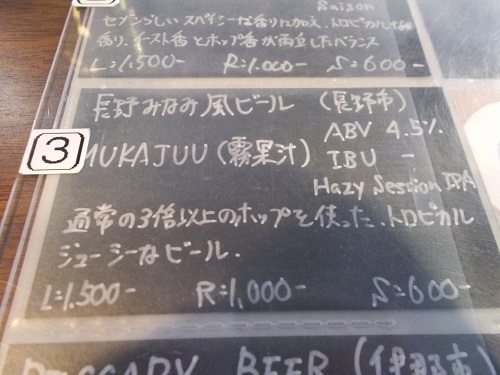 Saison
セゾンらしい スパイシーな香りに加え、トロピカルな
香り、イースト香とホップ香が両立したバランス
L=1,500- R=1,000- S=600-
3
長野みなみ風ビール (長野市)
MUKAJUU (霧果汁)
ABV 4.5%
IBU -
Hazy Session IPA
通常の3倍以上のホップを使った、トロピカル
ジューシーなビール.
L=1,500- R=1,000- S=600-
BEER (伊那市)